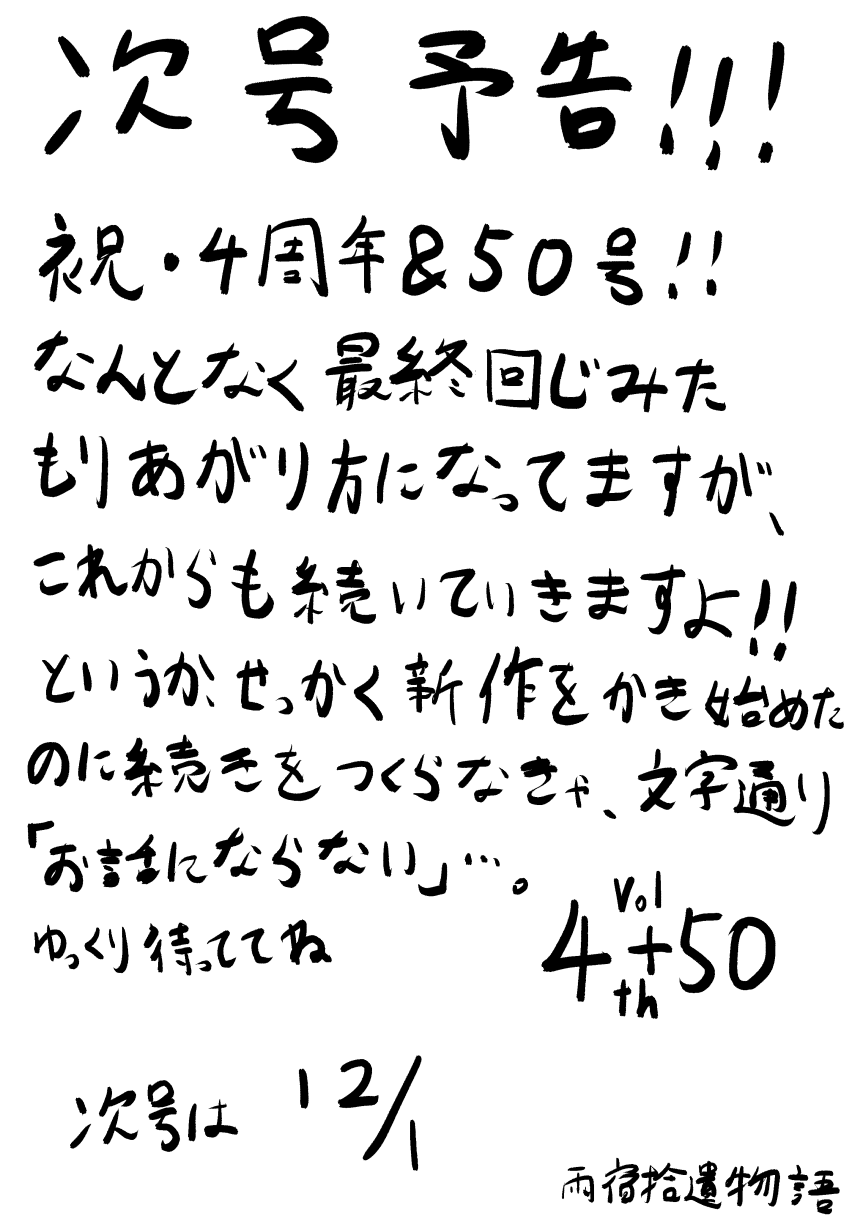 次号予告!!!
祝・4周年&50号!!
なんとなく最終回じみた
もりあがり方になってますが、
これからも続いていきますよ!!
というか、せっかく新作をかき始めた
のに続きをつくらなきゃ、文字通り
「お話にならない」…。
ゆっくり待っててね
Vol
4+50
th
次号は 12/1
雨宿拾遺物語